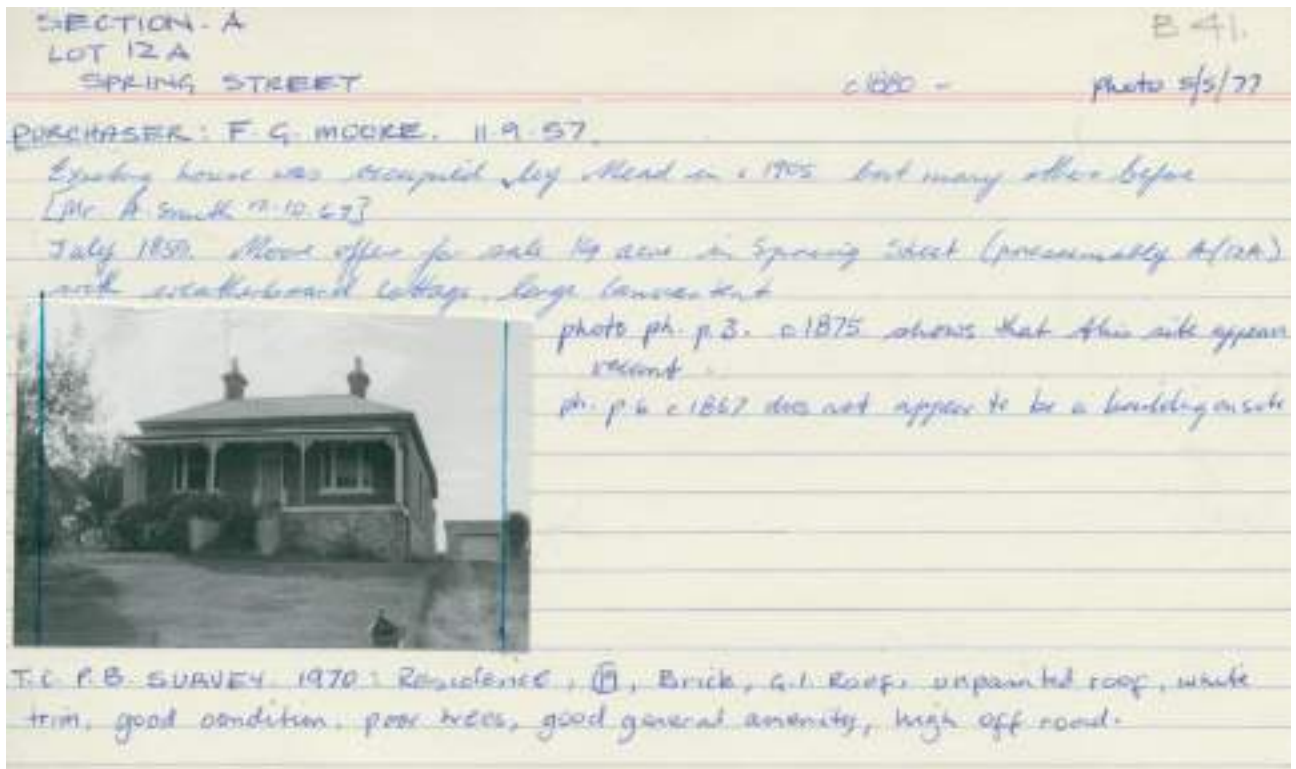 SECTION - A
B 41.
LOT 12A
SPRING STREET c1880 - photo 5/5/77
PURCHASER: F. G. MOORE. 11.9.57.
Existing house was occupied by Mead in c 1905 but many others before
[Mr A. Smith 10.67]
July 1859. Moore offers for sale 1/4 acre in Spring Street (presumably A/12A)
with weatherboard cottage, large
photo ph. p 3. c1875 shows that this site appears
vacant.
ph. p 6 c1867 does not appear to be a building on site
T.C.P.B. SURVEY. 1970: Residence, Brick, G.I. Roof, unpainted roof, white
trim, good condition, poor trees, good general amenity, high off road.